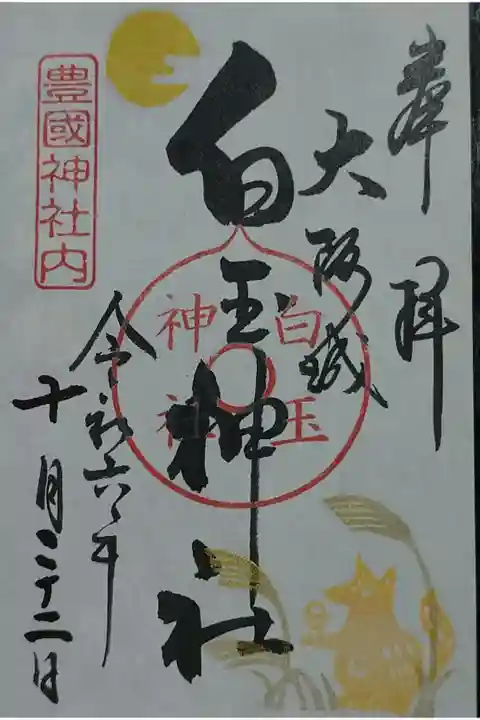 奉拝
大阪城
白玉神社
白玉
神社
豊國神社内
令和六年
十月二十二日